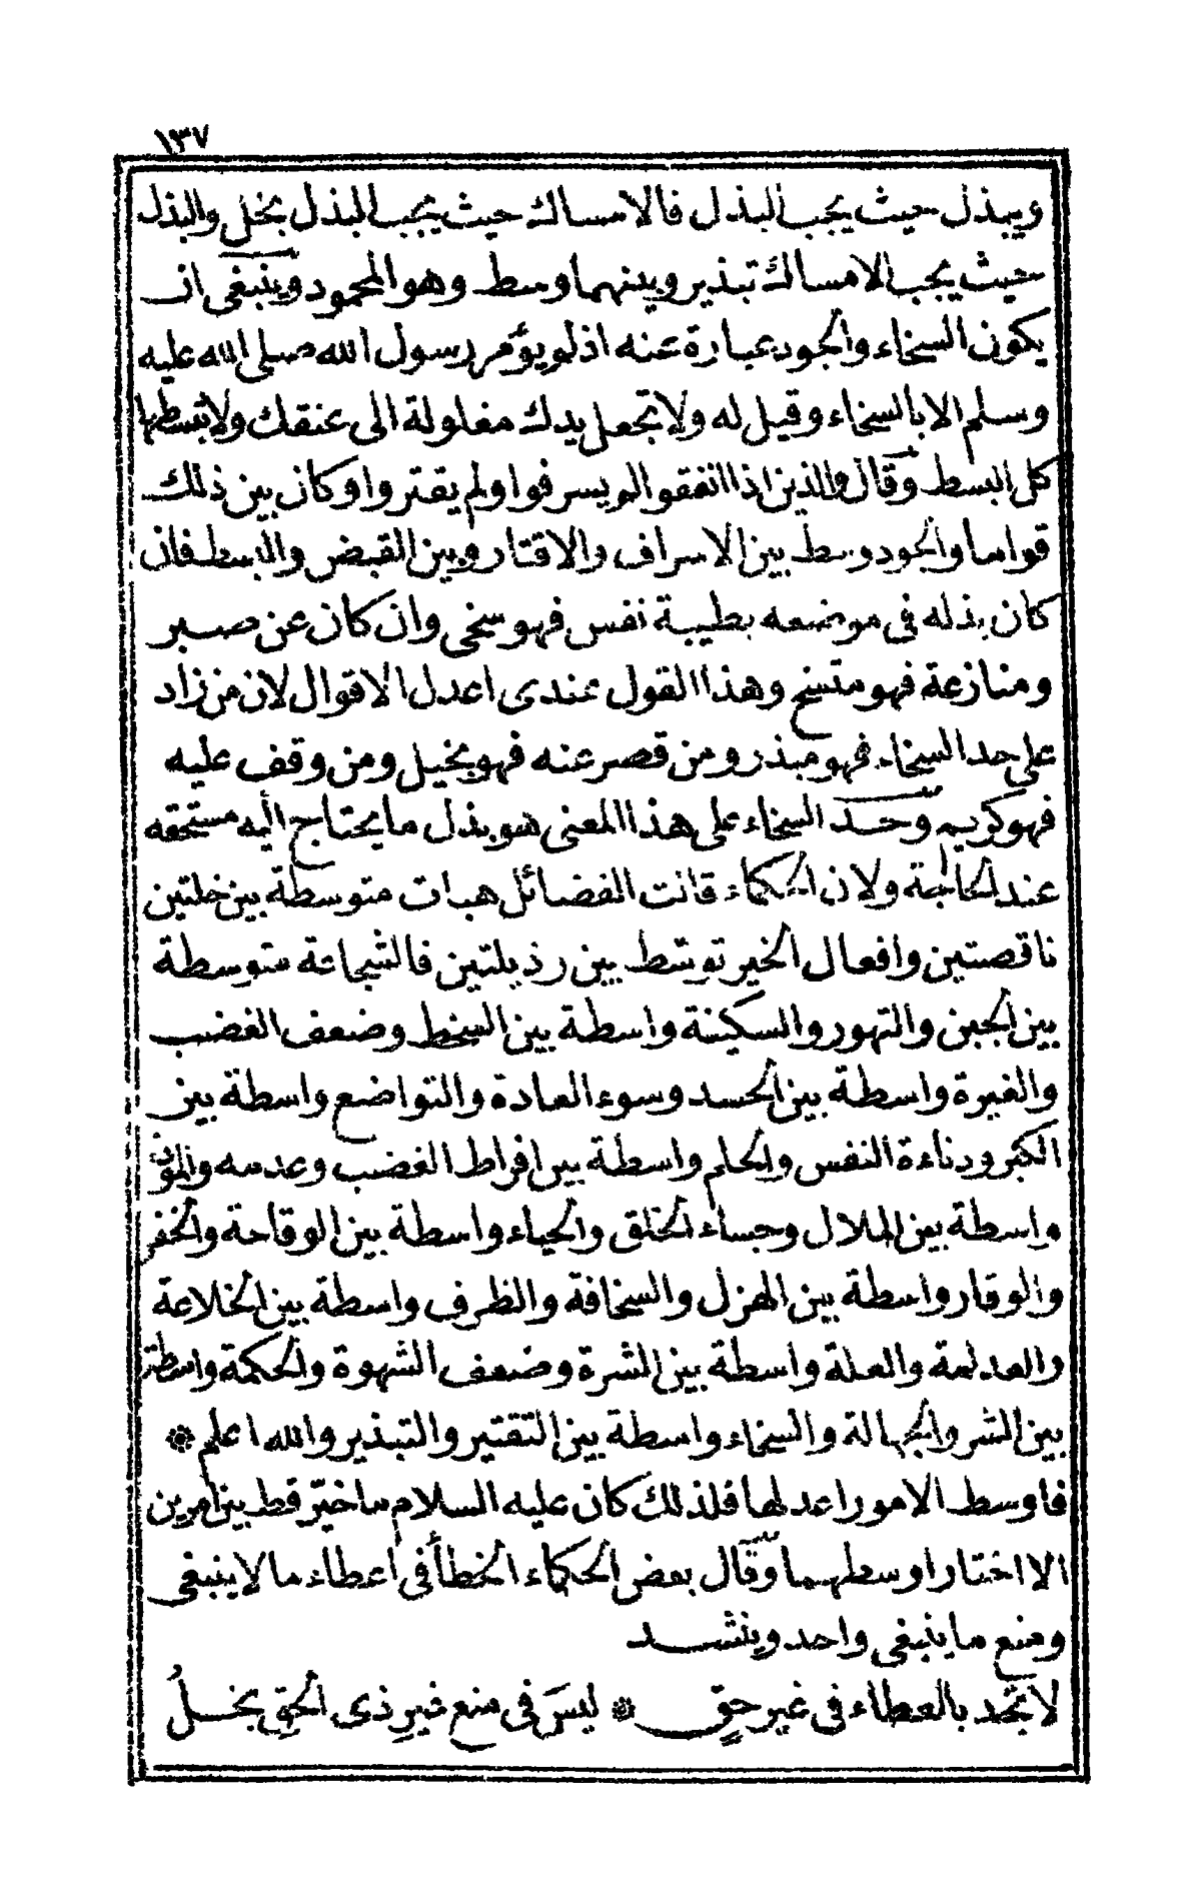 ١٣٧
ويبذل حيث يجب البذل فالامساك حيث يجب البذل بخل والبذل
حيث يجب الامساك تبذير وبينهما وسط وهو المحمود وينبغى ان
يكون السخاء والجود عبارة عنه اذ لم يؤمر رسول الله صلى الله عليه
وسلم الا بالسخاء وقيل له ولا تجعل يدك مغلولة الى عنقك ولا تبسطها
كل البسط وقال والذين اذا انفقوا لم يسرفوا ولم يقتروا وكان بين ذلك
قواما والجود وسط بين الاسراف والاقتار وبين القبض والبسط فان
كان بذله فى موضعه بطيبة نفس فهو سخى وان كان عن صبر
ومنازعة فهو متسخ وهذا القول عندى اعدل الاقوال لان من زاد
على حد السخاء فهو مبذر ومن قصر عنه فهو بخيل ومن وقف عليه
فهو كريم وحد السخاء على هذا المعنى هو بذل ما يحتاج اليه مستحقه
عند الحاجة ولان الحكماء قالت الفضائل هبات متوسطة بين خلتين
ناقصتين وافعال الخير توسط بين رذيلتين فالشجاعة متوسطة
بين الجبن والتهور والسكينة واسطة بين السخط وضعف الغضب
والغيرة واسطة بين الحسد وسوء العادة والتواضع واسطة بين
الكبر ودناءة النفس والحلم واسطة بين افراط الغضب وعدمه والمودة
واسطة بين الملال وجساء الخلق والحياء واسطة بين الوقاحة والخفر
والوقار واسطة بين الهزل والسخافة والظرف واسطة بين الخلاعة
والعدلعة والعلة واسطة بين الشرة وضعف الشهوة والحكمة واسطة
بين الشر والجهالة والسخاء واسطة بين التقتير والتبذير والله اعلم *
فاوسط الامور اعدلها فلذلك كان عليه السلام ما خيّر قط بين امرين
الا اختار اوسطهما وقال بعض الحكماء الخطأ فى اعطاء ما لا ينبغى
ومنع ما ينبغى واحد وينشد
لا تجد بالعطاء فى غير حقٍ * ليسَ فى منع غيرِ ذى الحقِ بخلُ